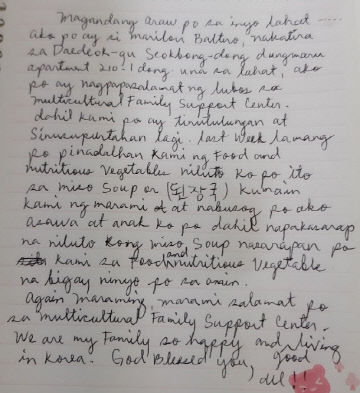 Magandang araw po sa inyo lahat .....
ako po ay si marilou Baltero, nakatira
sa Daedeok-gu Seokbong-dong dungmaru
apartment 210-1 dong. una sa lahat, ako
po ay nagpapasalamat ng lubos sa
multicultural Family Support Center.
dahil kami po ay tinutulungan at
Sinusupurtahan lagi. last week lamang
po pinadalhan kami ng Food and
nutritious Vegetables niluto ko po ito
sa miso Soup or (된장국) kumain
kami ng marami at nabusog po ako
asawa at anak ko po dahil napakasarap
na niluto kong miso Soup nasarapan po
kami sa Food and nutritious Vegetable
na bigay ninyo po sa amin.
Again Maraming, marami salamat po
sa multicultural Family Support Center.
We are my Family so happy and living
in Korea. God Blessed you, good
all !!